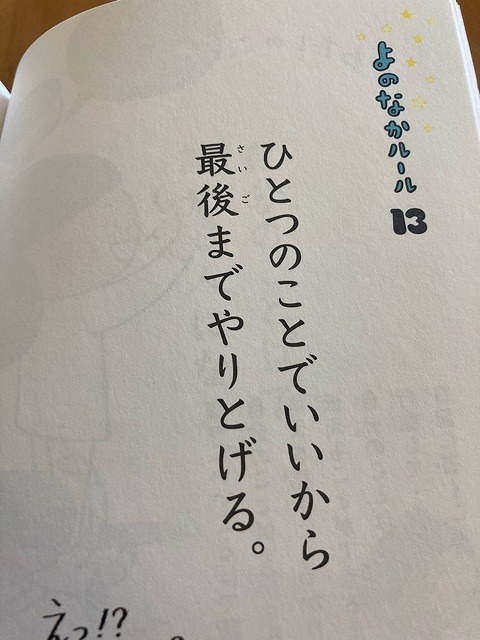 よのなかルール 13
ひとつのことでいいから
最後までやりとげる。
さいご
えっ!?